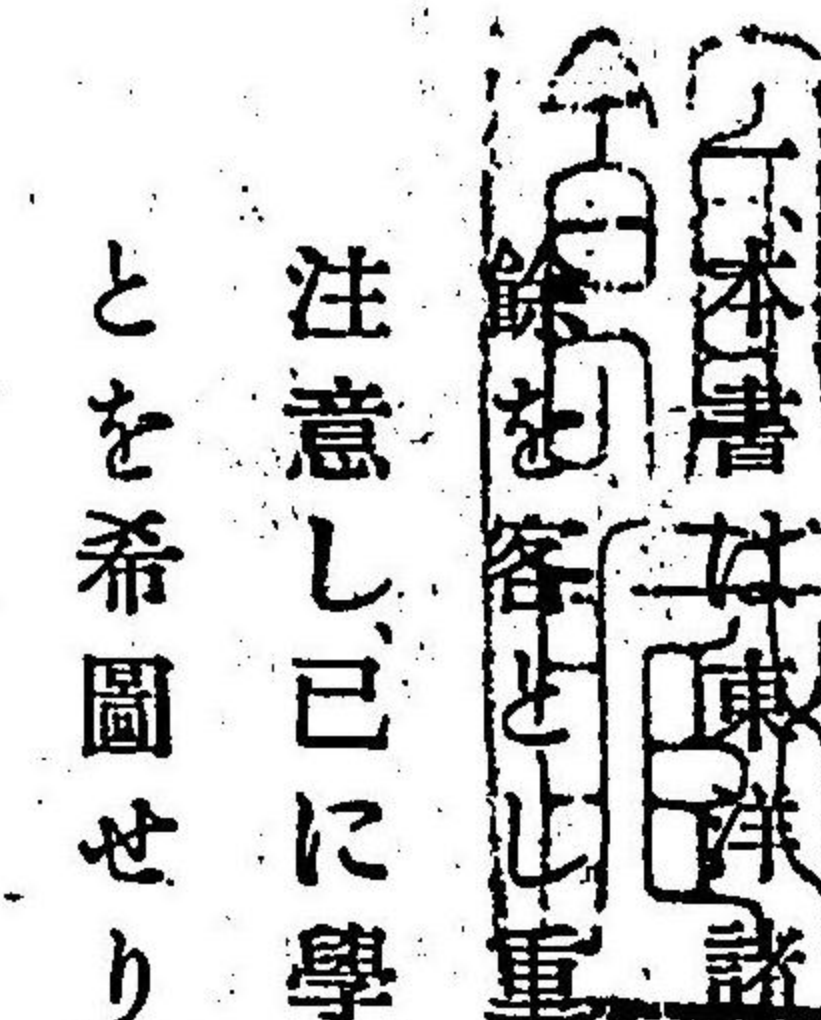 一、本書は東洋諸
餘を客とし重
注意し、已に學
とを希圖せり